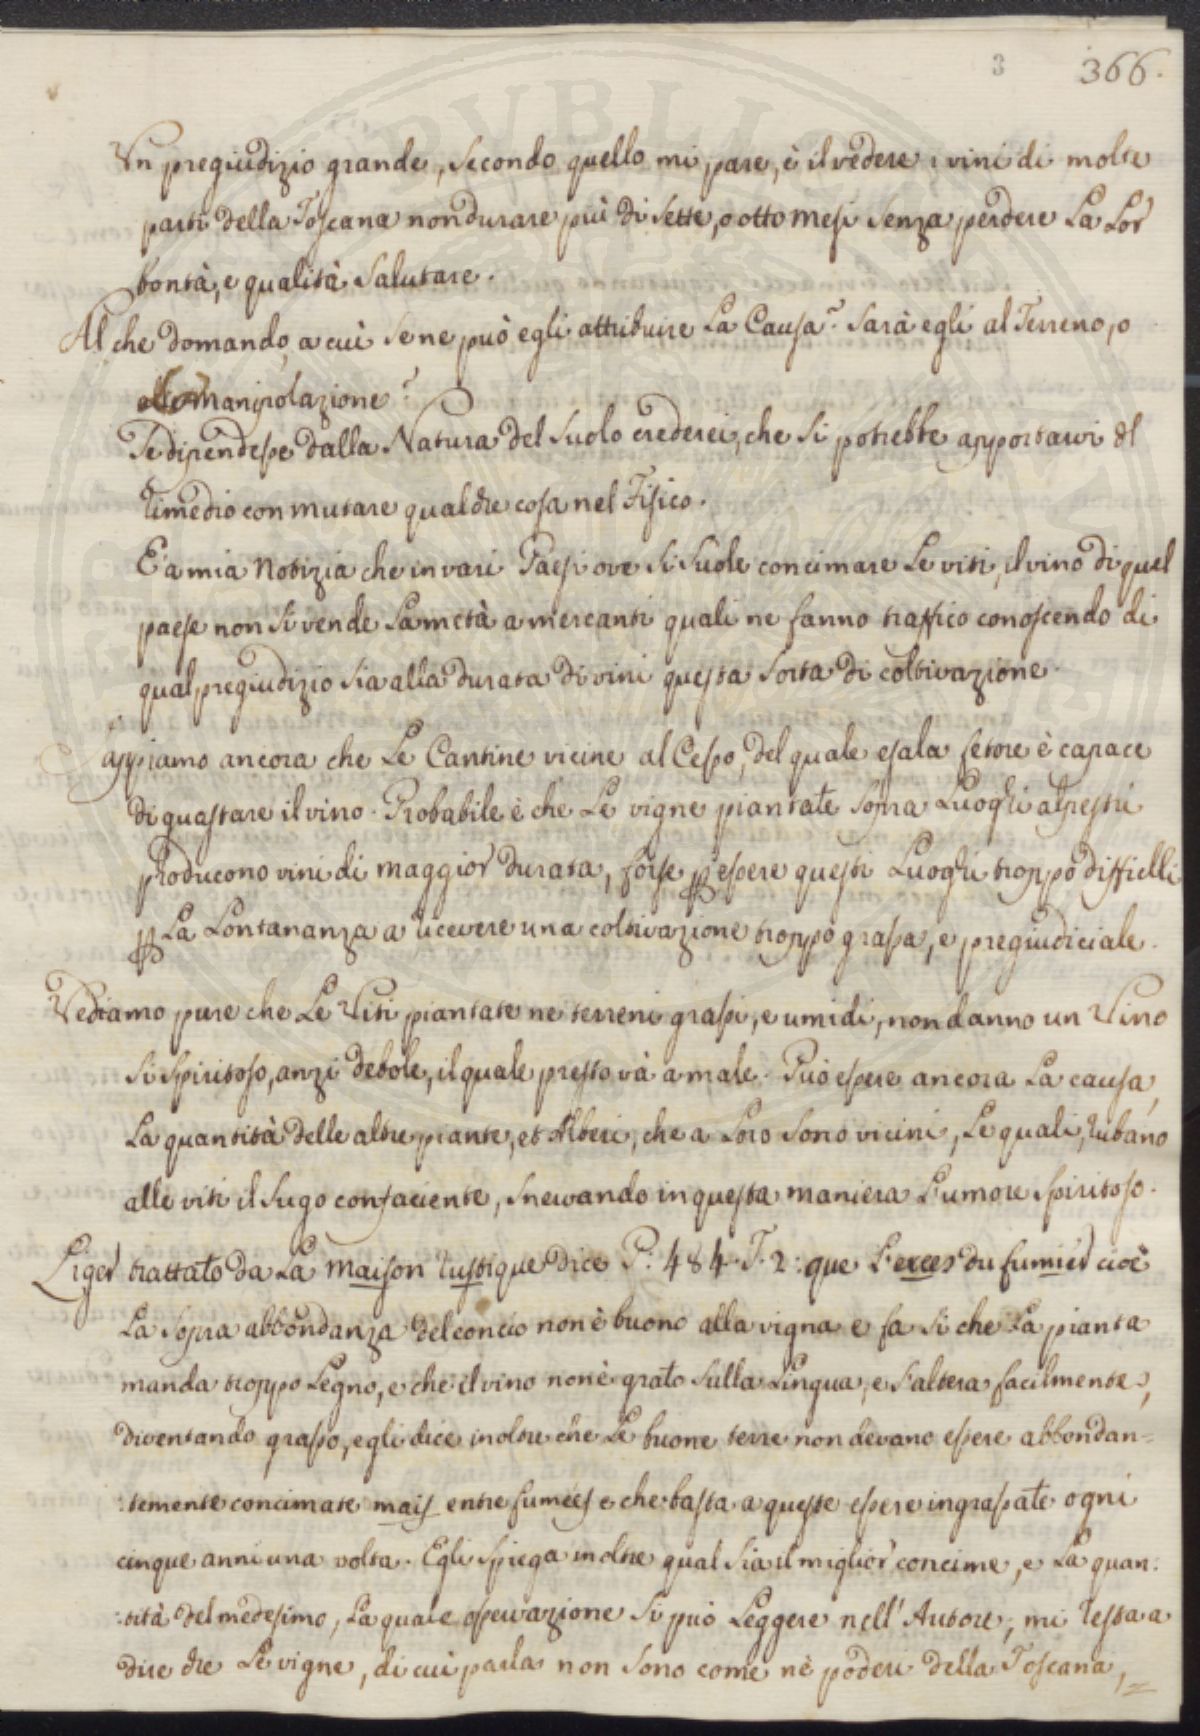 3 366.
Un pregiudizio grande, secondo quello mi pare, è il vedere i vini di molte
parti della Toscana non durare più di sette, o otto mesi senza perdere La Lor
bontà, e qualità salutare.
Al che domando, a cui se ne può egli attribuire La Causa? Sarà egli al Terreno, o
alla manipolazione?
Se dipendesse dalla Natura del suolo crederei, che si potrebbe apportarvi il
rimedio con mutare qualche cosa nel Fisico.
È a mia Notizia che in varii Paesi ove si suole concimare Le viti, il vino di quel
paese non si vende La metà a mercanti quali ne fanno traffico conoscendo di
qual pregiudizio sia alla durata di vini questa sorta di coltivazione.
Sappiamo ancora che Le Cantine vicine al Cesso, del quale esala fetore è capace
di guastare il vino. Probabile è che Le vigne piantate sopra Luoghi alpestri
producono vini di maggior durata, forse p essere questi Luoghi troppo difficili
p La Lontananza a ricevere una coltivazione troppo grassa, e pregiudiciale.
Vediamo pure che Le Viti piantate ne terreni grassi, e umidi, non danno un Vino
sì spiritoso, anzi debole, il quale presto và a male. Può essere ancora La causa,
La quantità delle altre piante, et Alberi, che a Loro sono vicini, Le quali, rubano
alle viti il sugo confaciente, snervando in questa maniera L'umore spiritoso.
Liger trattato da La maison rustique dice P: 484. T. 2: que L'exces du fumier cioè
La sopra abbondanza del concio non è buono alla vigna e fa si che La pianta
manda troppo Legno, e che il vino non è grato sulla Lingua, e s'altera facilmente,
diventando grasso, egli dice inoltre che Le buone terre non devano essere abbondan=
:temente concimate mais entre fumées e che basta a queste essere ingrassate ogni
cinque anni una volta. Egli spiega inoltre qual sia il miglior concime, e La quan:
:tità del medesimo, La quale osservazione si può Leggere nell'Autore; mi resta a
dire che Le vigne, di cui parla non sono come nè poderi della Toscana,